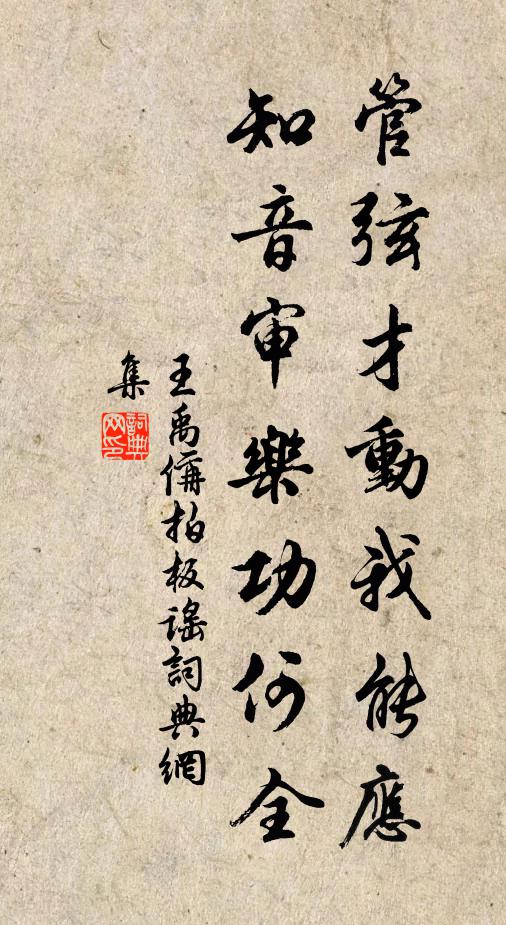 管弦才動我能應
知音审樂功何全
王禹偁拍板謡詞典網
集
詞典
网印